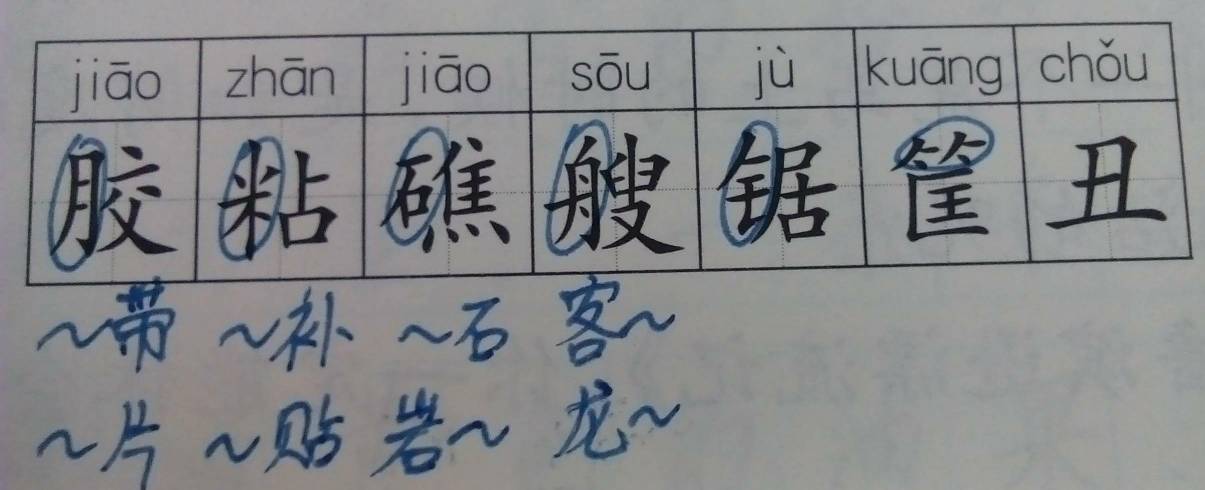 jiāo zhān jiāo sōu jù kuāng chǒu
胶 粘 礁 艘 锯 筐 丑
～带 ～补 ～石 客～
～片 ～贴 岩～ 龙～